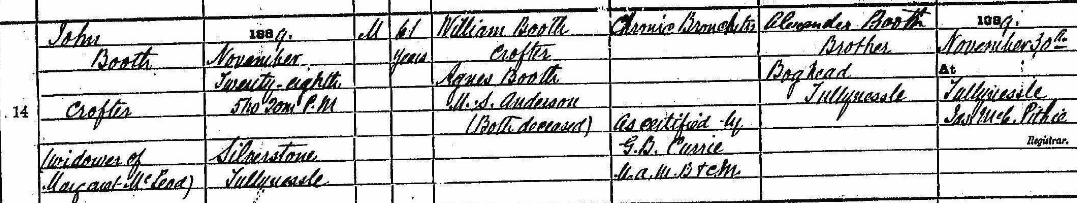 14
John
Booth
Crofter
(widower of
Margaret McLeod)
1889.
November
Twenty-eighth
5h. 20m. P.M
Silverstone
Tullynessle
M
61
Years
William Booth
Crofter
Agnes Booth
M.S. Anderson
(Both deceased)
Chronic Bronchitis
As certified by
G.B. Currie
M.A.M.B & C.M
Alexander Booth
Brother
Boghead
Tullynessle
1889.
November 30th
At
Tullynessle
Jas McC. Pithie
Registrar.